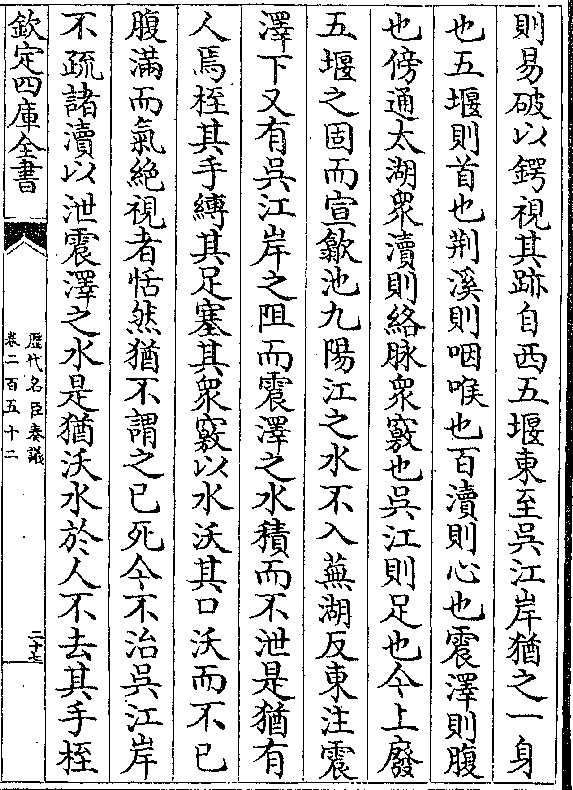 則易破以鍔視其跡自西五堰東至吳江岸猶之一身
也五堰則首也荆溪則咽喉也百瀆則心也震澤則腹
也傍通太湖衆瀆則絡脉衆竅也吳江則足也今上廢
五堰之固而宣歙池九陽江之水不入蕪湖反東注震
澤下又有吳江岸之阻而震澤之水積而不泄是猶有
人焉桎其手縛其足塞其衆竅以水沃其口沃而不已
腹滿而氣絶視者恬然猶不謂之已死今不治吳江岸
不疏諸瀆以泄震澤之水是猶沃水於人不去其手桎
欽定四庫全書
歷代名臣奏議
卷二百五十二
二十七